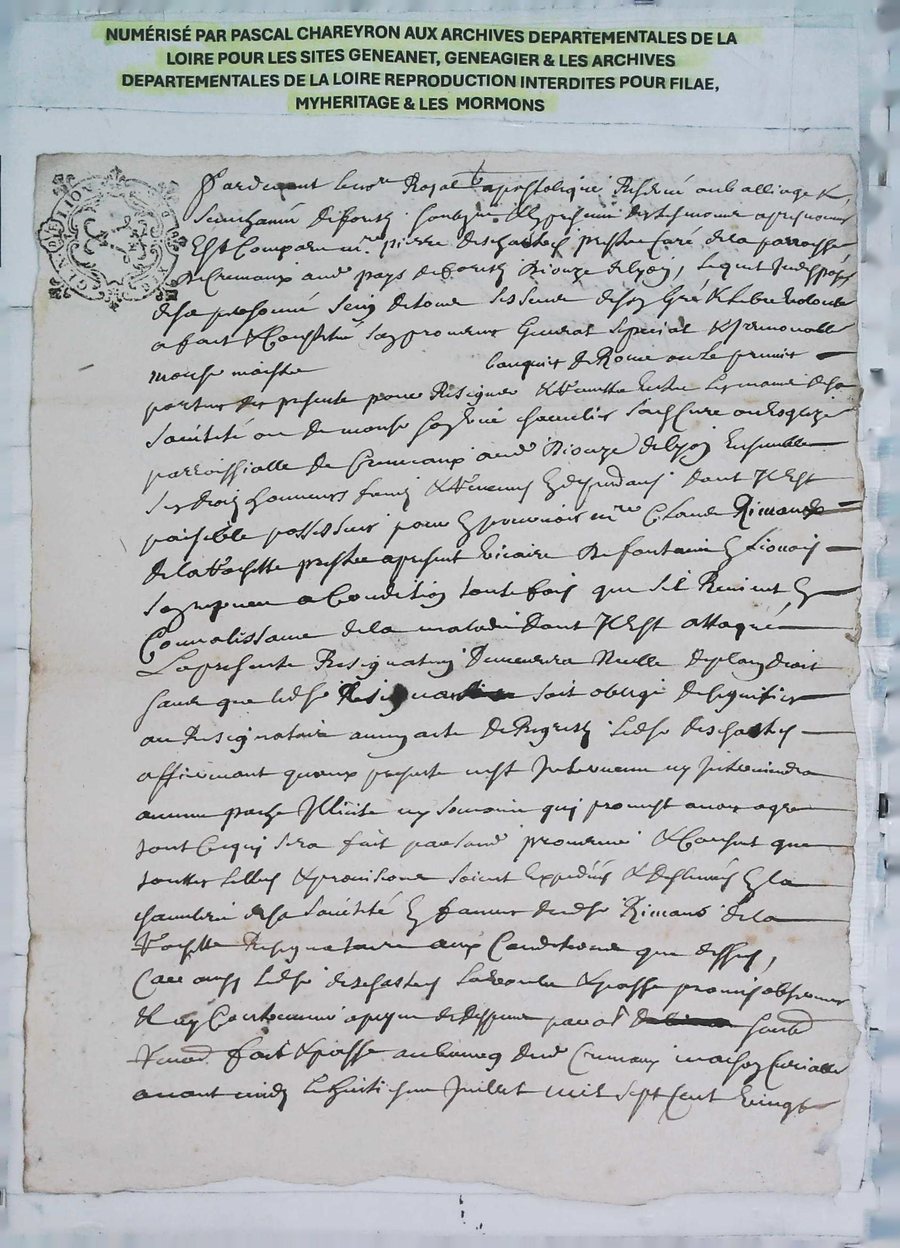 NUMÉRISÉ PAR PASCAL CHAREYRON AUX ARCHIVES DEPARTEMENTALES DE LA
LOIRE POUR LES SITES GENEANET, GENEAGIER & LES ARCHIVES
DEPARTEMENTALES DE LA LOIRE REPRODUCTION INTERDITES POUR FILAE,
MYHERITAGE & LES MORMONS
Pardevant le nore Royal & apostolique Reservé au balliage &
senechaussé de forest soubzne et presents des tesmoins apres nommes
Est Comparu mre pierre deschastes prestre Curé de la parroisse
de Cremaux aud pays de forest Dioceze de lyon, lequel Indisposé
de sa personne sein de tous ses sens de son gré & libre volonté
a fait & Constitué son procureur general special & Irrevocable
monsr maistre banquier de Rome ou le premier
porteur des presente pour Resigner & remettre Entre les mains de sa
saintété ou de monsr son vice chancelier sad Cure ou Esglize
parroissialle de Cremaux aud Dioceze de lyon Ensemble
ses droits honneurs fruits & revenus En dependans dont Il Est
paisible possesseur pour En pourvoir mre Claude Rimaud
de la Vochette prestre a present vicaire de fontaine En lionois
son nepveu a Condition toute fois que sil Revient En
Convalissance de la maladie dont Il Est attaqué
La presente Resignation demeurera Nulle de plain droit
sauf que led sr Resignant soit obligé de signifier
au Resignataire aucun acte de Regrest led sr deschastes
affirmant quaux presente nest Intervenu ny Interviendra
aucun pache Illicite ny simonie qui promet avoir agre
tout Ce qui sera fait par sond procureur & Consent que
touttes lettres & provisions soient Expediées & deslivrés En la
chancelerie de sa saintété En faveur dud sr Rimaud de la
Vochette Resignataire aux Conditions que dessus,
Car ainsy led sr deschastes La voulu & passé promis observer
& ny Contrevenir a peyne de despens par obon
fait & passé au bourg dud Cremaux maison Curialle
avant midy le huitiesme Juillet mil sept Cent vingt